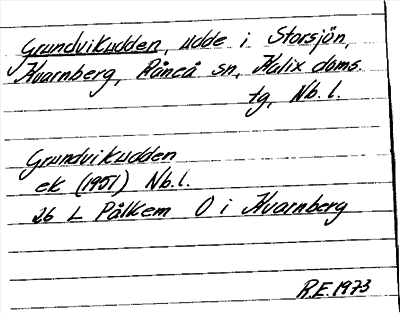 Grundvikudden, udde i Storsjön,
Kvarnberg, Råneå sn, Kalix doms.
tg, Nb.l.
Grundvikudden
ek (1951) Nb.l.
26 L Pålkem O i Kvarnberg
R.E. 1973